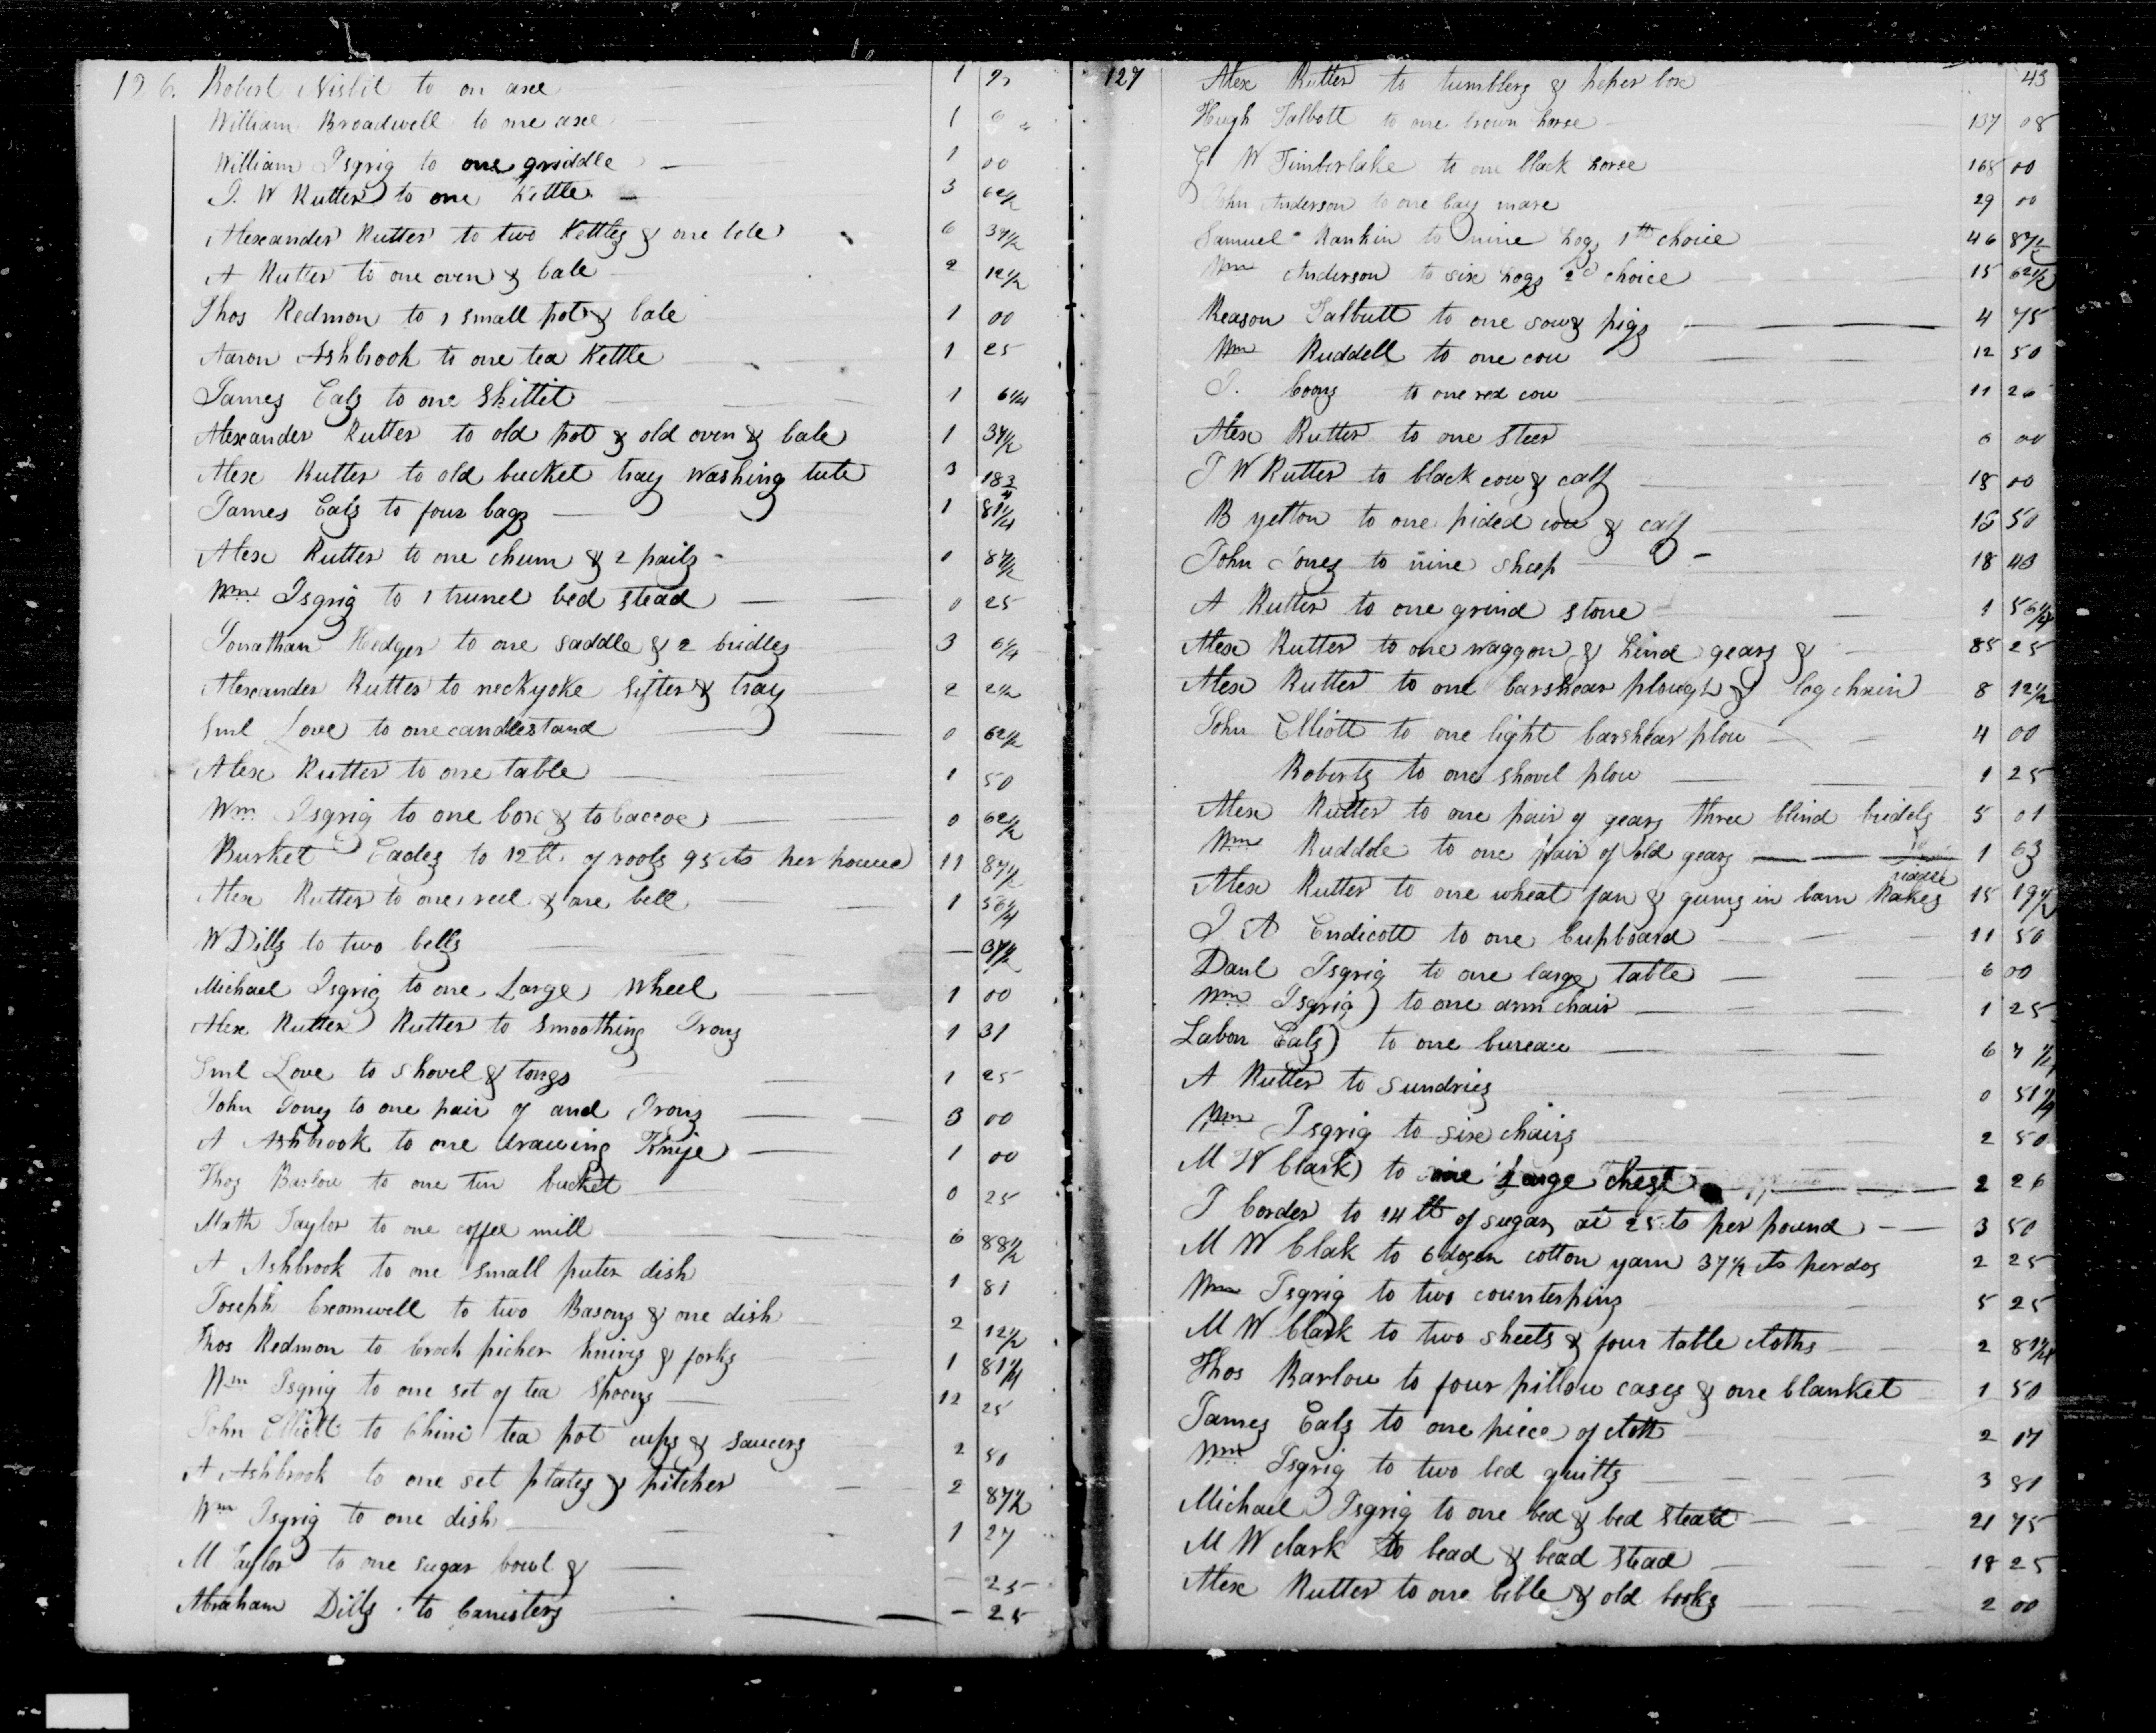 126. Robert Nisbit to on axe 1
William Broadwell to one axe 1
William Isgrig to one griddle — 1 00
J. W Rutter to one Kettle — 3 62 1/2
Alexander Rutter to two Kettles & one 6 37 1/2
A Rutter to one oven & bale 2 12 1/2
Thos Redmon to 1 small pot & bale 1 00
Aaron Ashbrook to one tea Kettle 1 25
James Eals to one Skittit 1 6 1/4
Alexander Rutter to old pot & old oven & bale 1 37 1/2
Alex Rutter to old bucket tray washing tub 3 18 3/4
James Eals to four bags 1 81 1/4
Alex Rutter to one churn & 2 pails 0 87 1/2
Wm Isgrig to 1 trunel bed stead 0 25
Jonathan Hedger to one saddle & 2 bridles 3 6 1/4
Alexander Rutter to neckyoke sifter & tray 2 2 1/2
Sml Love to one candlestand 0 62 1/2
Alex Rutter to one table 1 50
Wm Isgrig to one box & tobaccoe 0 62 1/2
Burket Eades to 12 lb of rools 95 cts per pound 11 87 1/2
Alex Rutter to one reel & one bell 1 56 1/4
W Dills to two bells — 37 1/2
Michael Isgrig to one Large Wheel 1 00
Alex Rutter Rutter to Smoothing Irons 1 31
Sml Love to shovel & tongs 1 25
John Jones to one pair of and Irons 3 00
A Ashbrook to one drawing Knife 1 00
Thos Barlow to one tin bucket 0 25
Math Taylor to one coffee mill 6 88 1/2
A Ashbrook to one small puter dish 1 81
Joseph Creomwell to two Basons & one dish 2 12 1/2
Thos Redmon to Crock picher knives & forks 1 81 1/4
Wm Isgrig to one set of tea spoons 12 25
John Elliott to Chini tea pot cups & saucers 2 50
A Ashbrook to one set plates & pitcher 2 87 1/2
Wm Isgrig to one dish 1 27
M Taylor to one sugar bowl & — 25
Abraham Dills to Canisters — 25
127 Alex Rutter to tumblers & peper box 43
Hugh Talbott to one brown horse 137 08
G W Timberlake to one black horse 168 00
John Anderson to one bay mare 29 00
Samuel Rankin to nine hogs 1th choice 46 87 1/2
Wm Anderson to six hogs 2d choice 15 62 1/2
Reason Talbutt to one sow & pigs 4 75
Wm Ruddell to one cow 12 50
J. Coons to one red cow 11 26
Alex Rutter to one steer 6 00
J W Rutter to black cow & calf 18 00
B yelton to one pided cow & calf 16 50
John Jones to nine sheep 18 43
A Rutter to one grind stone 1 56 1/4
Alex Rutter to one waggon & hind gears & 85 25
Alex Rutter to one barshear plough & log chain 8 12 1/2
John Elliott to one light barshear plow 4 00
Roberts to one shovel plow 1 25
Alex Rutter to one pair of gears three blind bridels 5 01
Wm Ruddele to one pair of old gears 1 63
Alex Rutter to one wheat fan & gums in barn Rakes 15 19 1/2
J A Endicott to one Cupboard 11 50
Danl Isgrig to one large table 6 00
Wm Isgrig to one arm chair 1 25
Labon Eals to one bureau 6
A Rutter to sundries 0 51 1/4
Wm Isgrig to six chairs 2 50
M W Clark to one Large chest 2 26
J Corder to 14 lb of sugar at 25 cts per pound 3 50
M W Clak to 6 dozen cotton yarn 37 1/2 cts per doz 2 25
Wm Isgrig to two counterpins 5 25
M W Clark to two sheets & four table cloths 2 81 1/4
Thos Barlow to four pillow cases & one blanket 1 50
James Eals to one piece of cloth 2 17
Wm Isgrig to two bed quilts 3 81
Michael Isgrig to one bed & bed stead 21 75
M W clark to bead & bead stead 18 25
Alex Rutter to one bible & old books 2 00